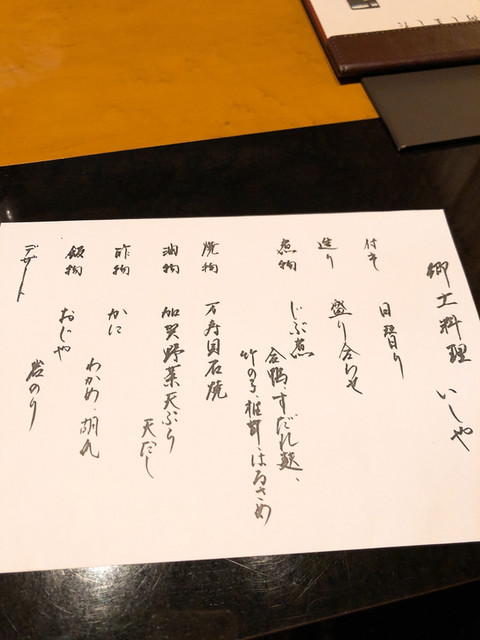 郷土料理 いしや
付き 日替り
造り 盛り合わせ
煮物 じぶ煮
合鴨、すだれ麩、
竹の子、椎茸、はるさめ
焼物 万寿貝石焼
油物 加賀野菜天ぷら
天だし
酢物 かに
わかめ、胡瓜
飯物 おじや
岩のり
デザート